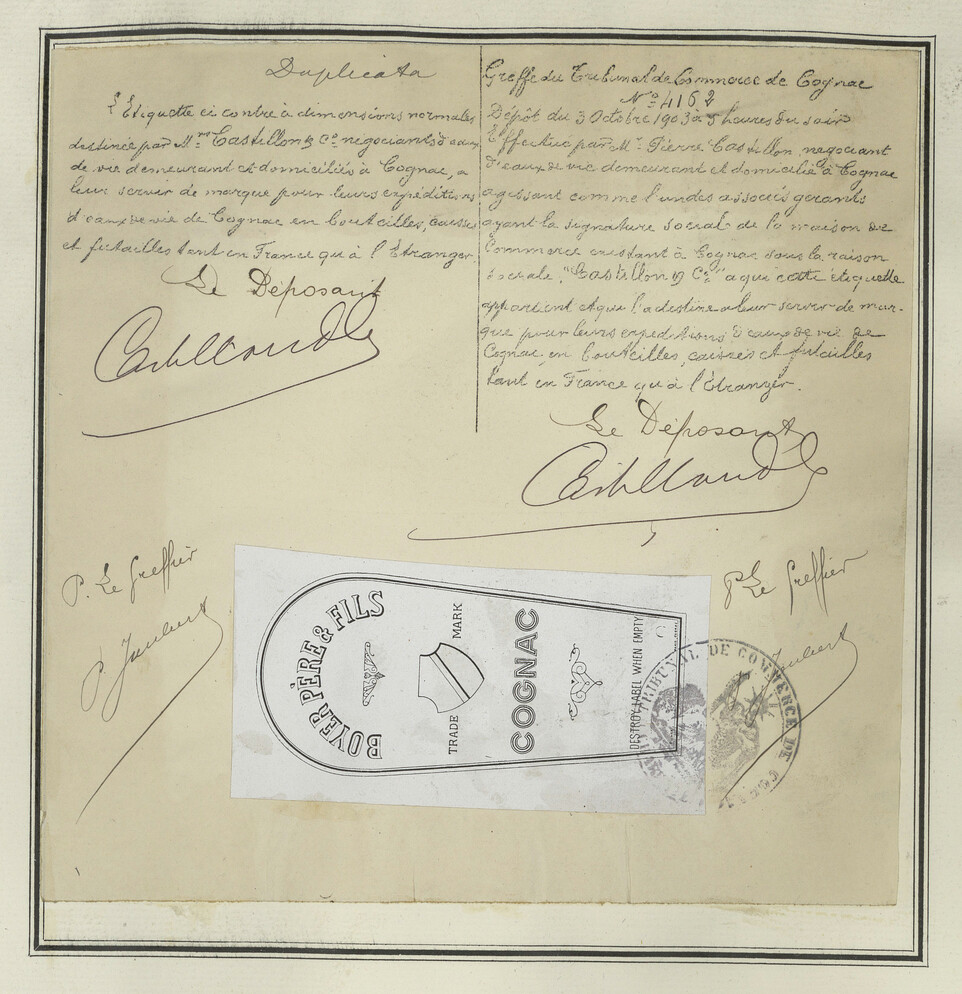 Duplicata
L'Etiquette ci contre à dimensions normales
destinée par Mrs Castillon & Co négociants d'eaux
de vie demeurant et domiciliés à Cognac, a
leur servir de marque pour leurs expéditions
d'eaux de vie de Cognac en bouteilles, caisses
et futailles tant en France qu'à l'Etranger.
Le Déposant
P. Le Greffier
P. Jaubert
Greffe du Tribunal de Commerce de Cognac
No 4162
Dépôt du 3 Octobre 1903 à 5 heures du soir
Effectué par M. Pierre Castillon, négociant
d'eaux de vie demeurant et domicilié à Cognac
agissant comme l'un des associés gérants
ayant la signature social de la maison de
Commerce existant à Cognac sous la raison
sociale "Castillon & Co" a qui cette étiquette
appartient et qui l'a destine a leur servir de mar-
que pour leurs expéditions d'eaux de vie de
Cognac en bouteilles, caisses et futailles
tant en France qu'à l'Etranger.
Le Déposant
P. Le Greffier
Jaubert
BOYER PÈRE & FILS
TRADE MARK
COGNAC
DESTROY LABEL WHEN EMPTY
TRIBUNAL DE COMMERCE DE